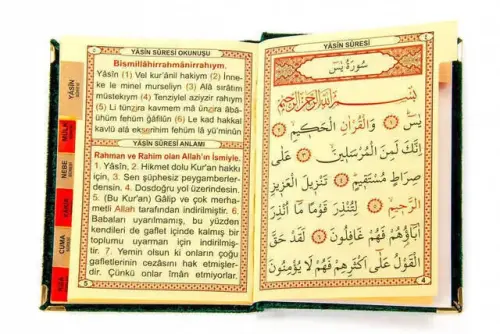 YÂSİN SÛRESİ OKUNUŞU
Bismillâhirrahmânirrahıym.
Yâsîn (1) Vel kur'ânil hakiym (2) İnne-
ke le minel murseliyn (3) Alâ sırâtim
müstekıym (4) Tenziylel aziyzir rahıym
(5) Li tünzira kavmem mâ ünzira âbâ-
ühüm fehüm ğâfilûn (6) Le kad hakkal
kavlü alâ ekserihim fehüm lâ yü'minûn
YÂSİN SÛRESİ ANLAMI
Rahman ve Rahim olan Allah'ın İsmiyle.
1. Yâsîn, 2. Hikmet dolu Kur'an hakkı
için, 3. Sen şüphesiz peygamberler-
densin. 4. Dosdoğru yol üzerindesin.
5. (Bu Kur'an) Gâlip ve çok merha-
metli Allah tarafından indirilmiştir. 6.
Babaları uyarılmamış, bu yüzden
kendileri de gaflet içinde kalmış bir
toplumu uyarman için indirilmiş-
tir. 7. Yemin olsun ki onların çoğu
gafletlerinin cezasını hak etmişler-
dir. Çünkü onlar îman etmiyorlar.
5
YÂSİN
MÜLK
NEBE
CUMA
YÂSİN SÛRESİ
سُورَةُ يٰسٓ
بِسْمِ اللّٰهِ الرَّحْمٰنِ الرَّحِيمِ
يٰسٓ ﴿١﴾ وَالْقُرْاٰنِ الْحَكِيمِ ﴿٢﴾
اِنَّكَ لَمِنَ الْمُرْسَلِينَ ﴿٣﴾ عَلٰى
صِرَاطٍ مُسْتَقِيمٍ ﴿٤﴾ تَنْزِيلَ الْعَزِيزِ
الرَّحِيمِ ﴿٥﴾ لِتُنْذِرَ قَوْمًا مَٓا اُنْذِرَ
اٰبَٓاؤُ۬هُمْ فَهُمْ غَافِلُونَ ﴿٦﴾ لَقَدْ حَقَّ
الْقَوْلُ عَلٰٓى اَكْثَرِهِمْ فَهُمْ لَا يُؤْمِنُونَ
4